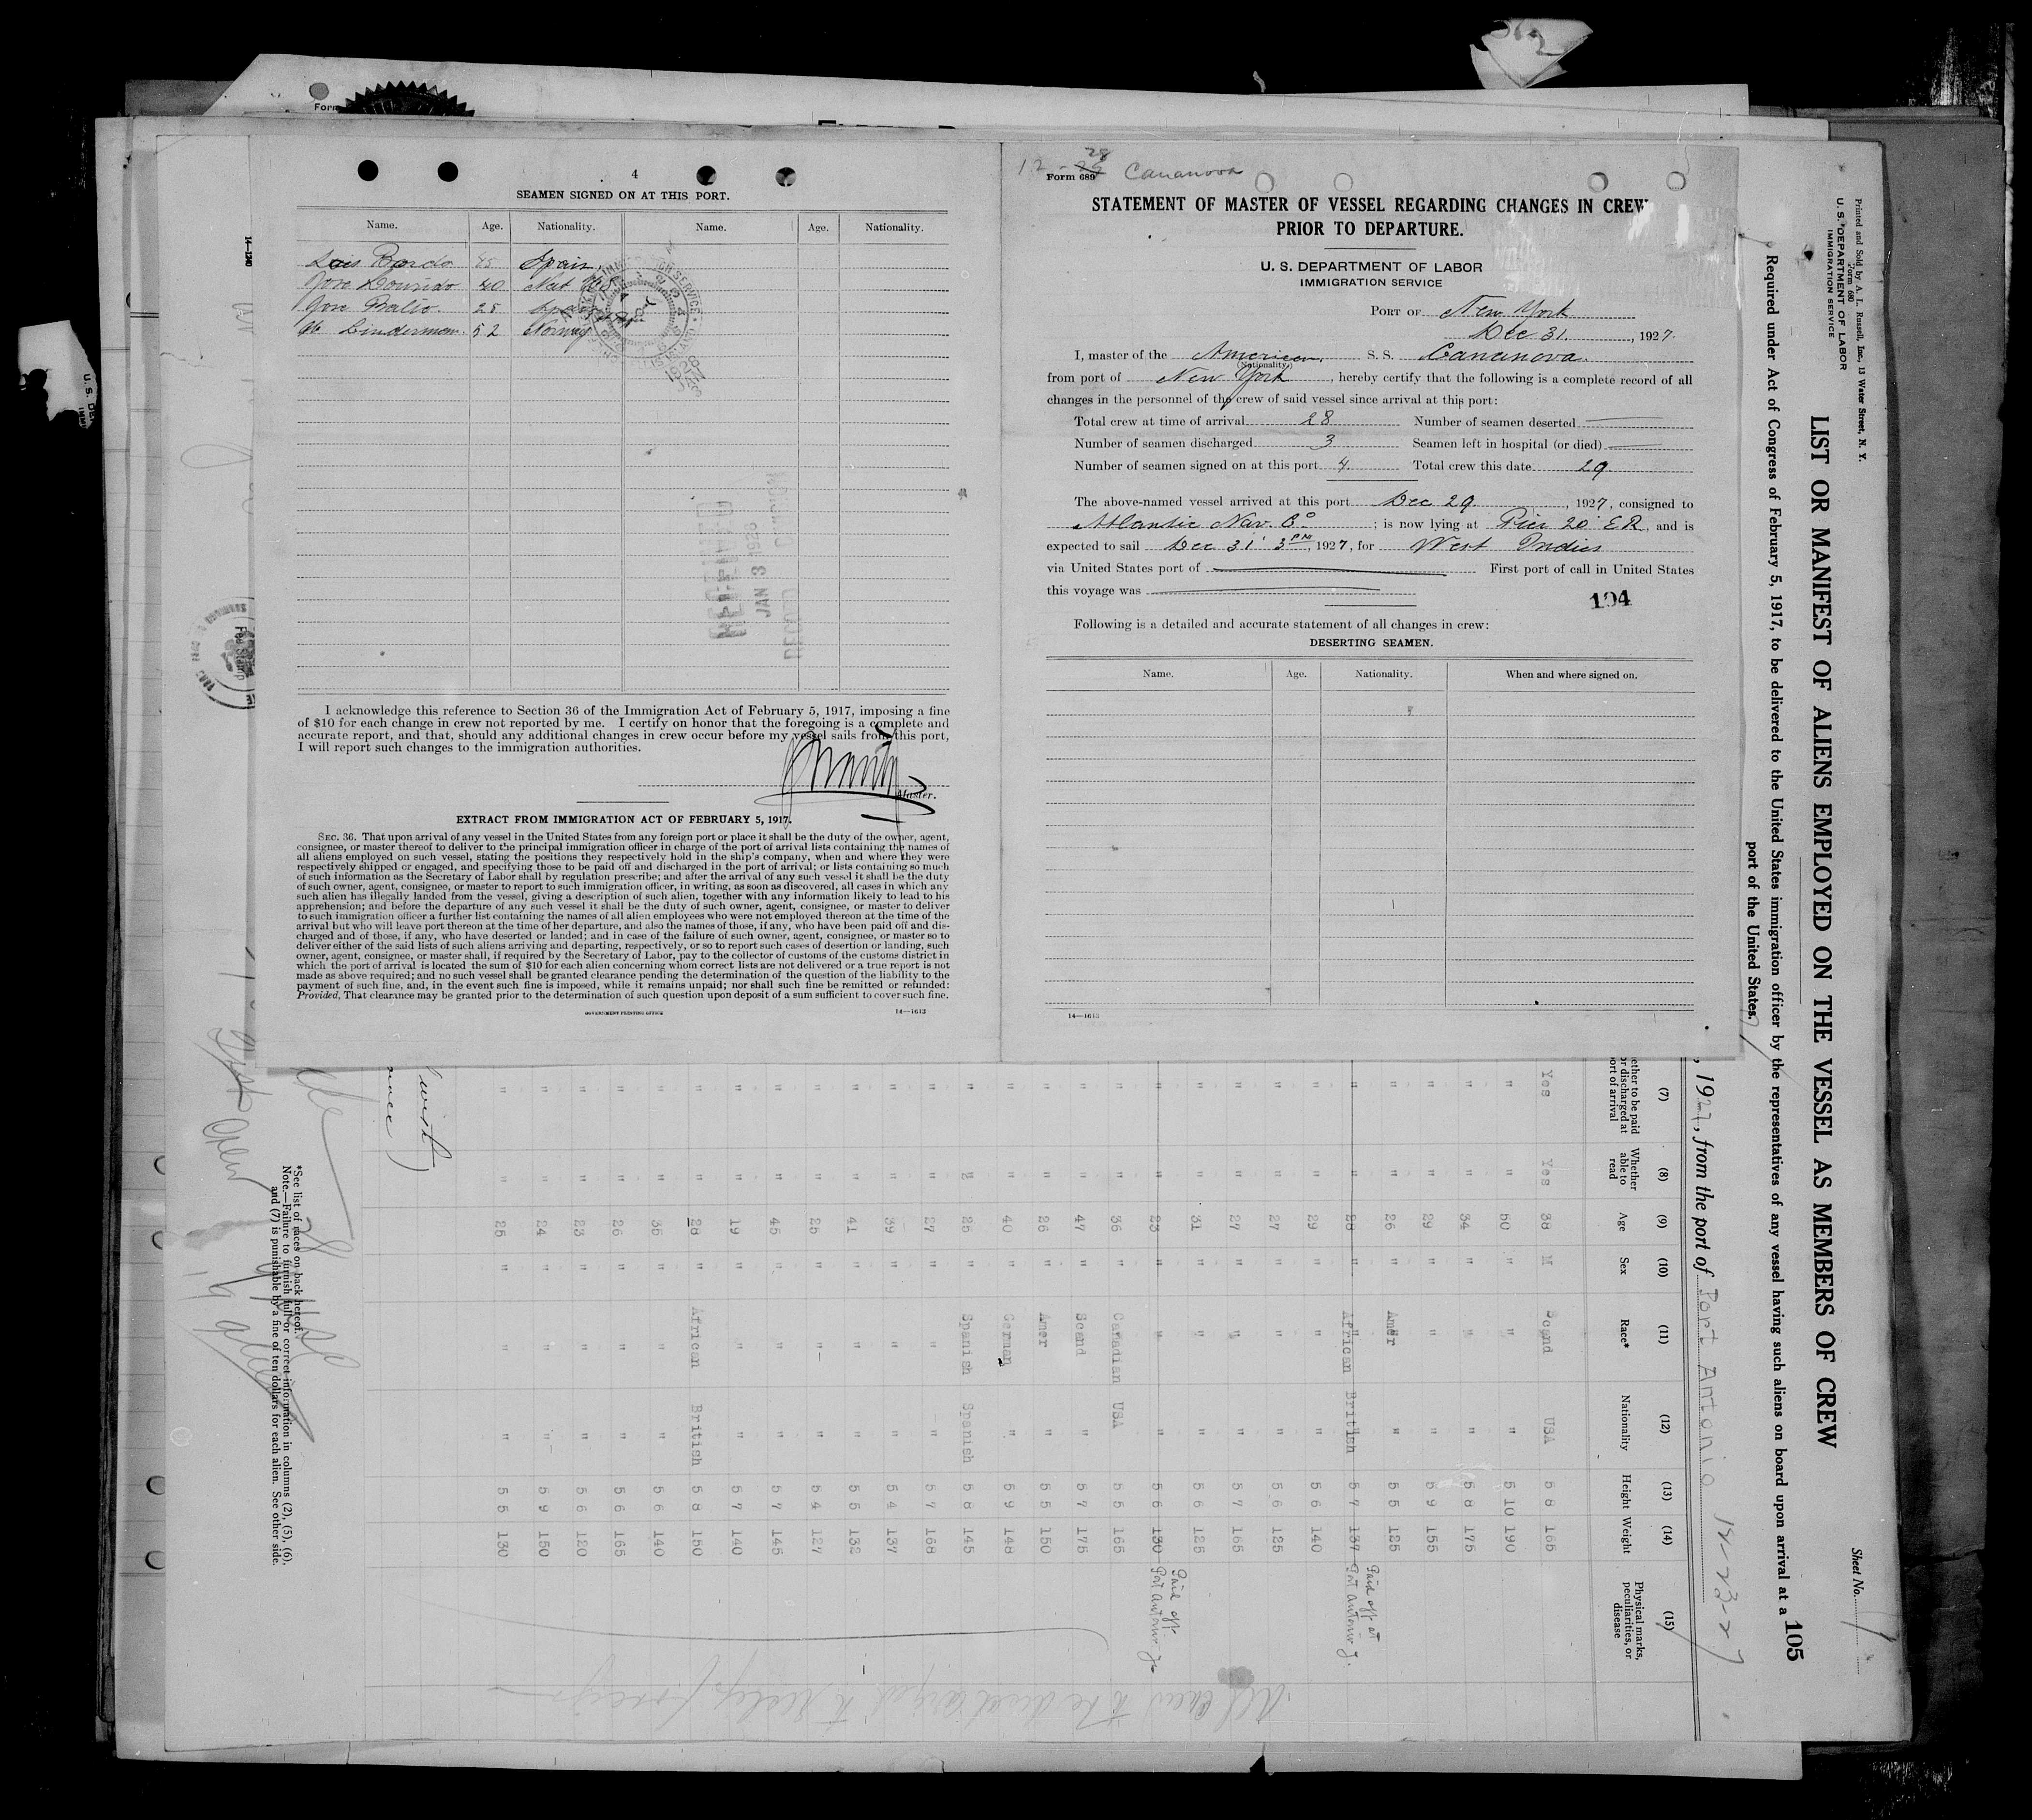 4
SEAMEN SIGNED ON AT THIS PORT.
Name. Age. Nationality. Name. Age. Nationality.
Luis Pardo 45 Spain
Jose Lourido 40
Jose 25 Spain
Linderman 52 Norway
JAN 3 1928
I acknowledge this reference to Section 36 of the Immigration Act of February 5, 1917, imposing a fine
of $10 for each change in crew not reported by me. I certify on honor that the foregoing is a complete and
accurate report, and that, should any additional changes in crew occur before my vessel sails from this port,
I will report such changes to the immigration authorities.
Master.
EXTRACT FROM IMMIGRATION ACT OF FEBRUARY 5, 1917.
SEC. 36. That upon arrival of any vessel in the United States from any foreign port or place it shall be the duty of the owner, agent,
consignee, or master thereof to deliver to the principal immigration officer in charge of the port of arrival lists containing the names of
all aliens employed on such vessel, stating the positions they respectively hold in the ship's company, when and where they were
respectively shipped or engaged, and specifying those to be paid off and discharged in the port of arrival; or lists containing so much
of such information as the Secretary of Labor shall by regulation prescribe; and after the arrival of any such vessel it shall be the duty
of such owner, agent, consignee, or master to report to such immigration officer, in writing, as soon as discovered, all cases in which any
such alien has illegally landed from the vessel, giving a description of such alien, together with any information likely to lead to his
apprehension; and before the departure of any such vessel it shall be the duty of such owner, agent, consignee, or master to deliver
to such immigration officer a further list containing the names of all alien employees who were not employed thereon at the time of the
arrival but who will leave port thereon at the time of her departure, and also the names of those, if any, who have been paid off and dis-
charged and of those, if any, who have deserted or landed; and in case of the failure of such owner, agent, consignee, or master so to
deliver either of the said lists of such aliens arriving and departing, respectively, or so to report such cases of desertion or landing, such
owner, agent, consignee, or master shall, if required by the Secretary of Labor, pay to the collector of customs of the customs district in
which the port of arrival is located the sum of $10 for each alien concerning whom correct lists are not delivered or a true report is not
made as above required; and no such vessel shall be granted clearance pending the determination of the question of the liability to the
payment of such fine, and, in the event such fine is imposed, while it remains unpaid; nor shall such fine be remitted or refunded:
Provided, That clearance may be granted prior to the determination of such question upon deposit of a sum sufficient to cover such fine.
GOVERNMENT PRINTING OFFICE 14—1613
12 28
Form 689 Cananova
STATEMENT OF MASTER OF VESSEL REGARDING CHANGES IN CREW
PRIOR TO DEPARTURE.
U. S. DEPARTMENT OF LABOR
IMMIGRATION SERVICE
PORT OF New York
Dec 31, 1927.
I, master of the American S. S. Cananova
(Nationality.)
from port of New York, hereby certify that the following is a complete record of all
changes in the personnel of the crew of said vessel since arrival at this port:
Total crew at time of arrival 28 Number of seamen deserted
Number of seamen discharged 3 Seamen left in hospital (or died)
Number of seamen signed on at this port 4 Total crew this date 29
The above-named vessel arrived at this port Dec 29, 1927, consigned to
Atlantic Nav. Co; is now lying at Pier 20 ER, and is
expected to sail Dec 31 3 PM, 1927, for West Indies
via United States port of First port of call in United States
this voyage was
194
Following is a detailed and accurate statement of all changes in crew:
DESERTING SEAMEN.
Name. Age. Nationality. When and where signed on.
14—1613
Printed and Sold by A. L. Russell, Inc., 13 Water Street, N. Y.
Form 680
U. S. DEPARTMENT OF LABOR
IMMIGRATION SERVICE
Sheet No. 1
LIST OR MANIFEST OF ALIENS EMPLOYED ON THE VESSEL AS MEMBERS OF CREW
105
Required under Act of Congress of February 5, 1917, to be delivered to the United States immigration officer by the representatives of any vessel having such aliens on board upon arrival at a
port of the United States.
, 1927, from the port of Port Antonio 12-23-27
(7) (8) (9) (10) (11) (12) (13) (14) (15)
Whether able to read Age Sex Race* Nationality Height Weight Physical marks, peculiarities, or disease
Yes Yes 38 M Scand USA 5 8 165
" " 50 " " " 5 10 190
" " 34 " " " 5 8 175
" " 29 " " " 5 9 155
" " 26 " Amer " 5 5 125
" " 28 " African British 5 7 137 Paid off at Port Antonio J.
" " 29 " " " 5 6 140
" " 27 " " " 5 6 125
" " 27 " " " 5 7 165
" " 31 " " " 5 6 125
" " 23 " " " 5 6 130 Paid off Port Antonio Ja
" " 36 " Canadian USA 5 5 165
" " 47 " Scand " 5 7 175
" " 26 " Amer " 5 5 150
" " 40 " German " 5 9 148
" " 25 " Spanish Spanish 5 8 145
" " 27 " " " 5 7 168
" " 39 " " " 5 4 137
" " 41 " " " 5 5 132
" " 25 " " " 5 4 127
" " 45 " " " 5 7 145
" " 19 " " " 5 7 140
" " 28 " African British 5 8 150
" " 35 " " " 5 6 140
" " 26 " " " 5 6 165
" " 23 " " " 5 6 120
" " 24 " " " 5 9 150
" " 25 " " " 5 5 130
*See list of races on back hereof.
Note.—Failure to furnish full or correct information in columns (2), (5), (6),
and (7) is punishable by a fine of ten dollars for each alien. See other side.
14—1240
Fee Stamp